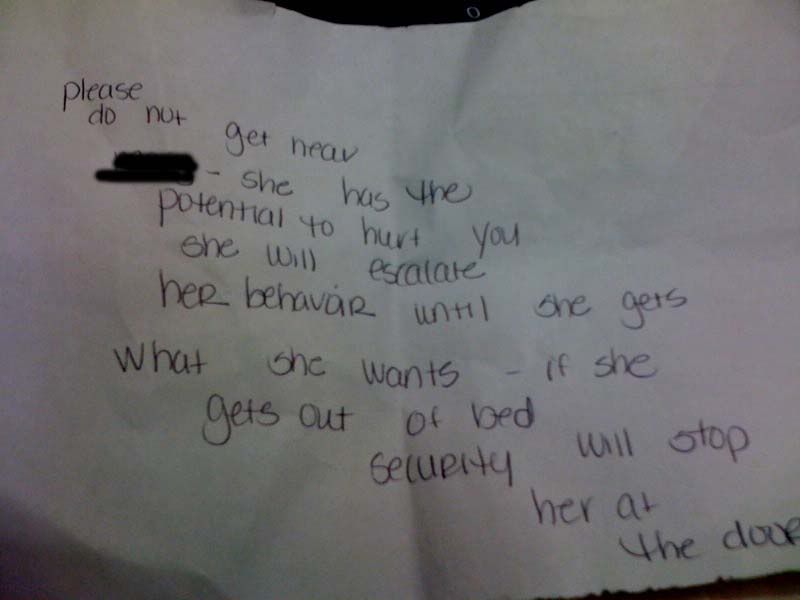 please
do not
get near
- she has the
potential to hurt you
she will escalate
her behavair until she gets
What she wants - if she
gets out of bed
security will stop
her at
the door